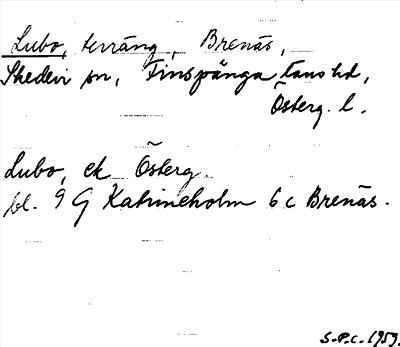 Lubo, terräng, Brenäs,
Skedevi sn, Finspånga läns hd,
Österg. l.
Lubo, ek Österg.
bl. 9 G Katrineholm 6 c Brenäs.
S.P.C. 1959.